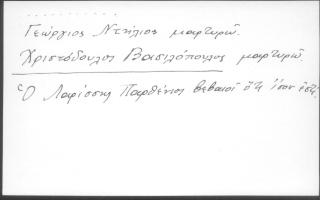 Γεώργιος Ντήλιος μαρτυρῶ.
Χριστόδουλος Βασιλόπουλος μαρτυρῶ.
Ὁ Λαρίσσης Παρθένιος βεβαιοῖ ὅτι ἴσον ἐστί.